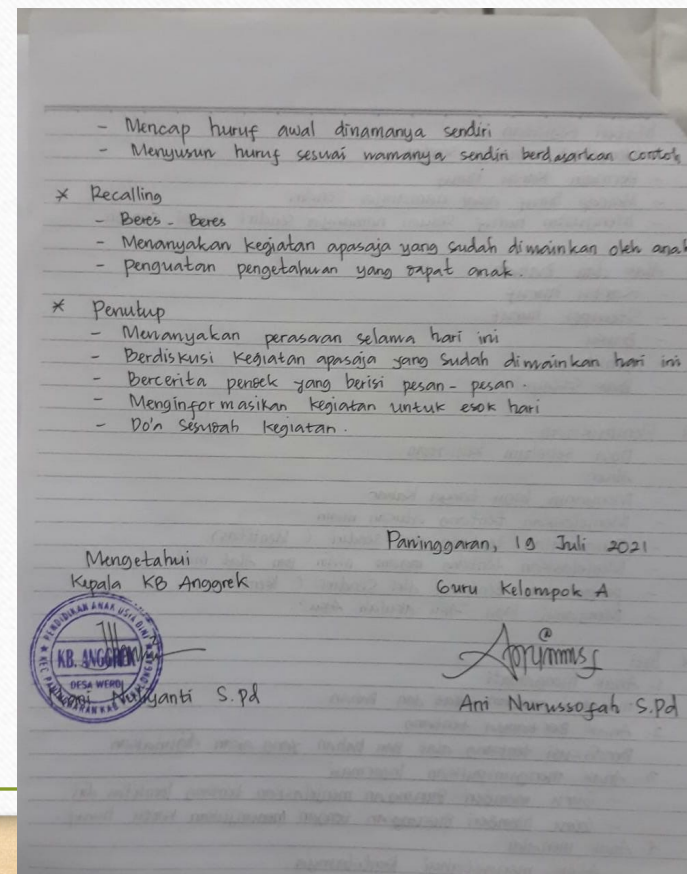 - Mencap huruf awal dinamanya sendiri
- Menyusun huruf sesuai namanya sendiri berdasarkan contoh
* Recalling
- Beres - Beres
- Menanyakan kegiatan apasaja yang sudah dimainkan oleh anak
- penguatan pengetahuan yang dapat anak.
* Penutup
- Menanyakan perasaan selama hari ini
- Berdiskusi kegiatan apasaja yang sudah dimainkan hari ini
- Bercerita pendek yang berisi pesan - pesan.
- Menginformasikan kegiatan untuk esok hari
- Do'a Sesudah kegiatan.
Paninggaran, 19 Juli 2021
Mengetahui
Kepala KB Anggrek
Guru Kelompok A
PENDIDIKAN ANAK USIA DINI
KB. ANGGREK
DESA WERDI
Nuliyanti S.pd
Ani Nurussofah S.Pd